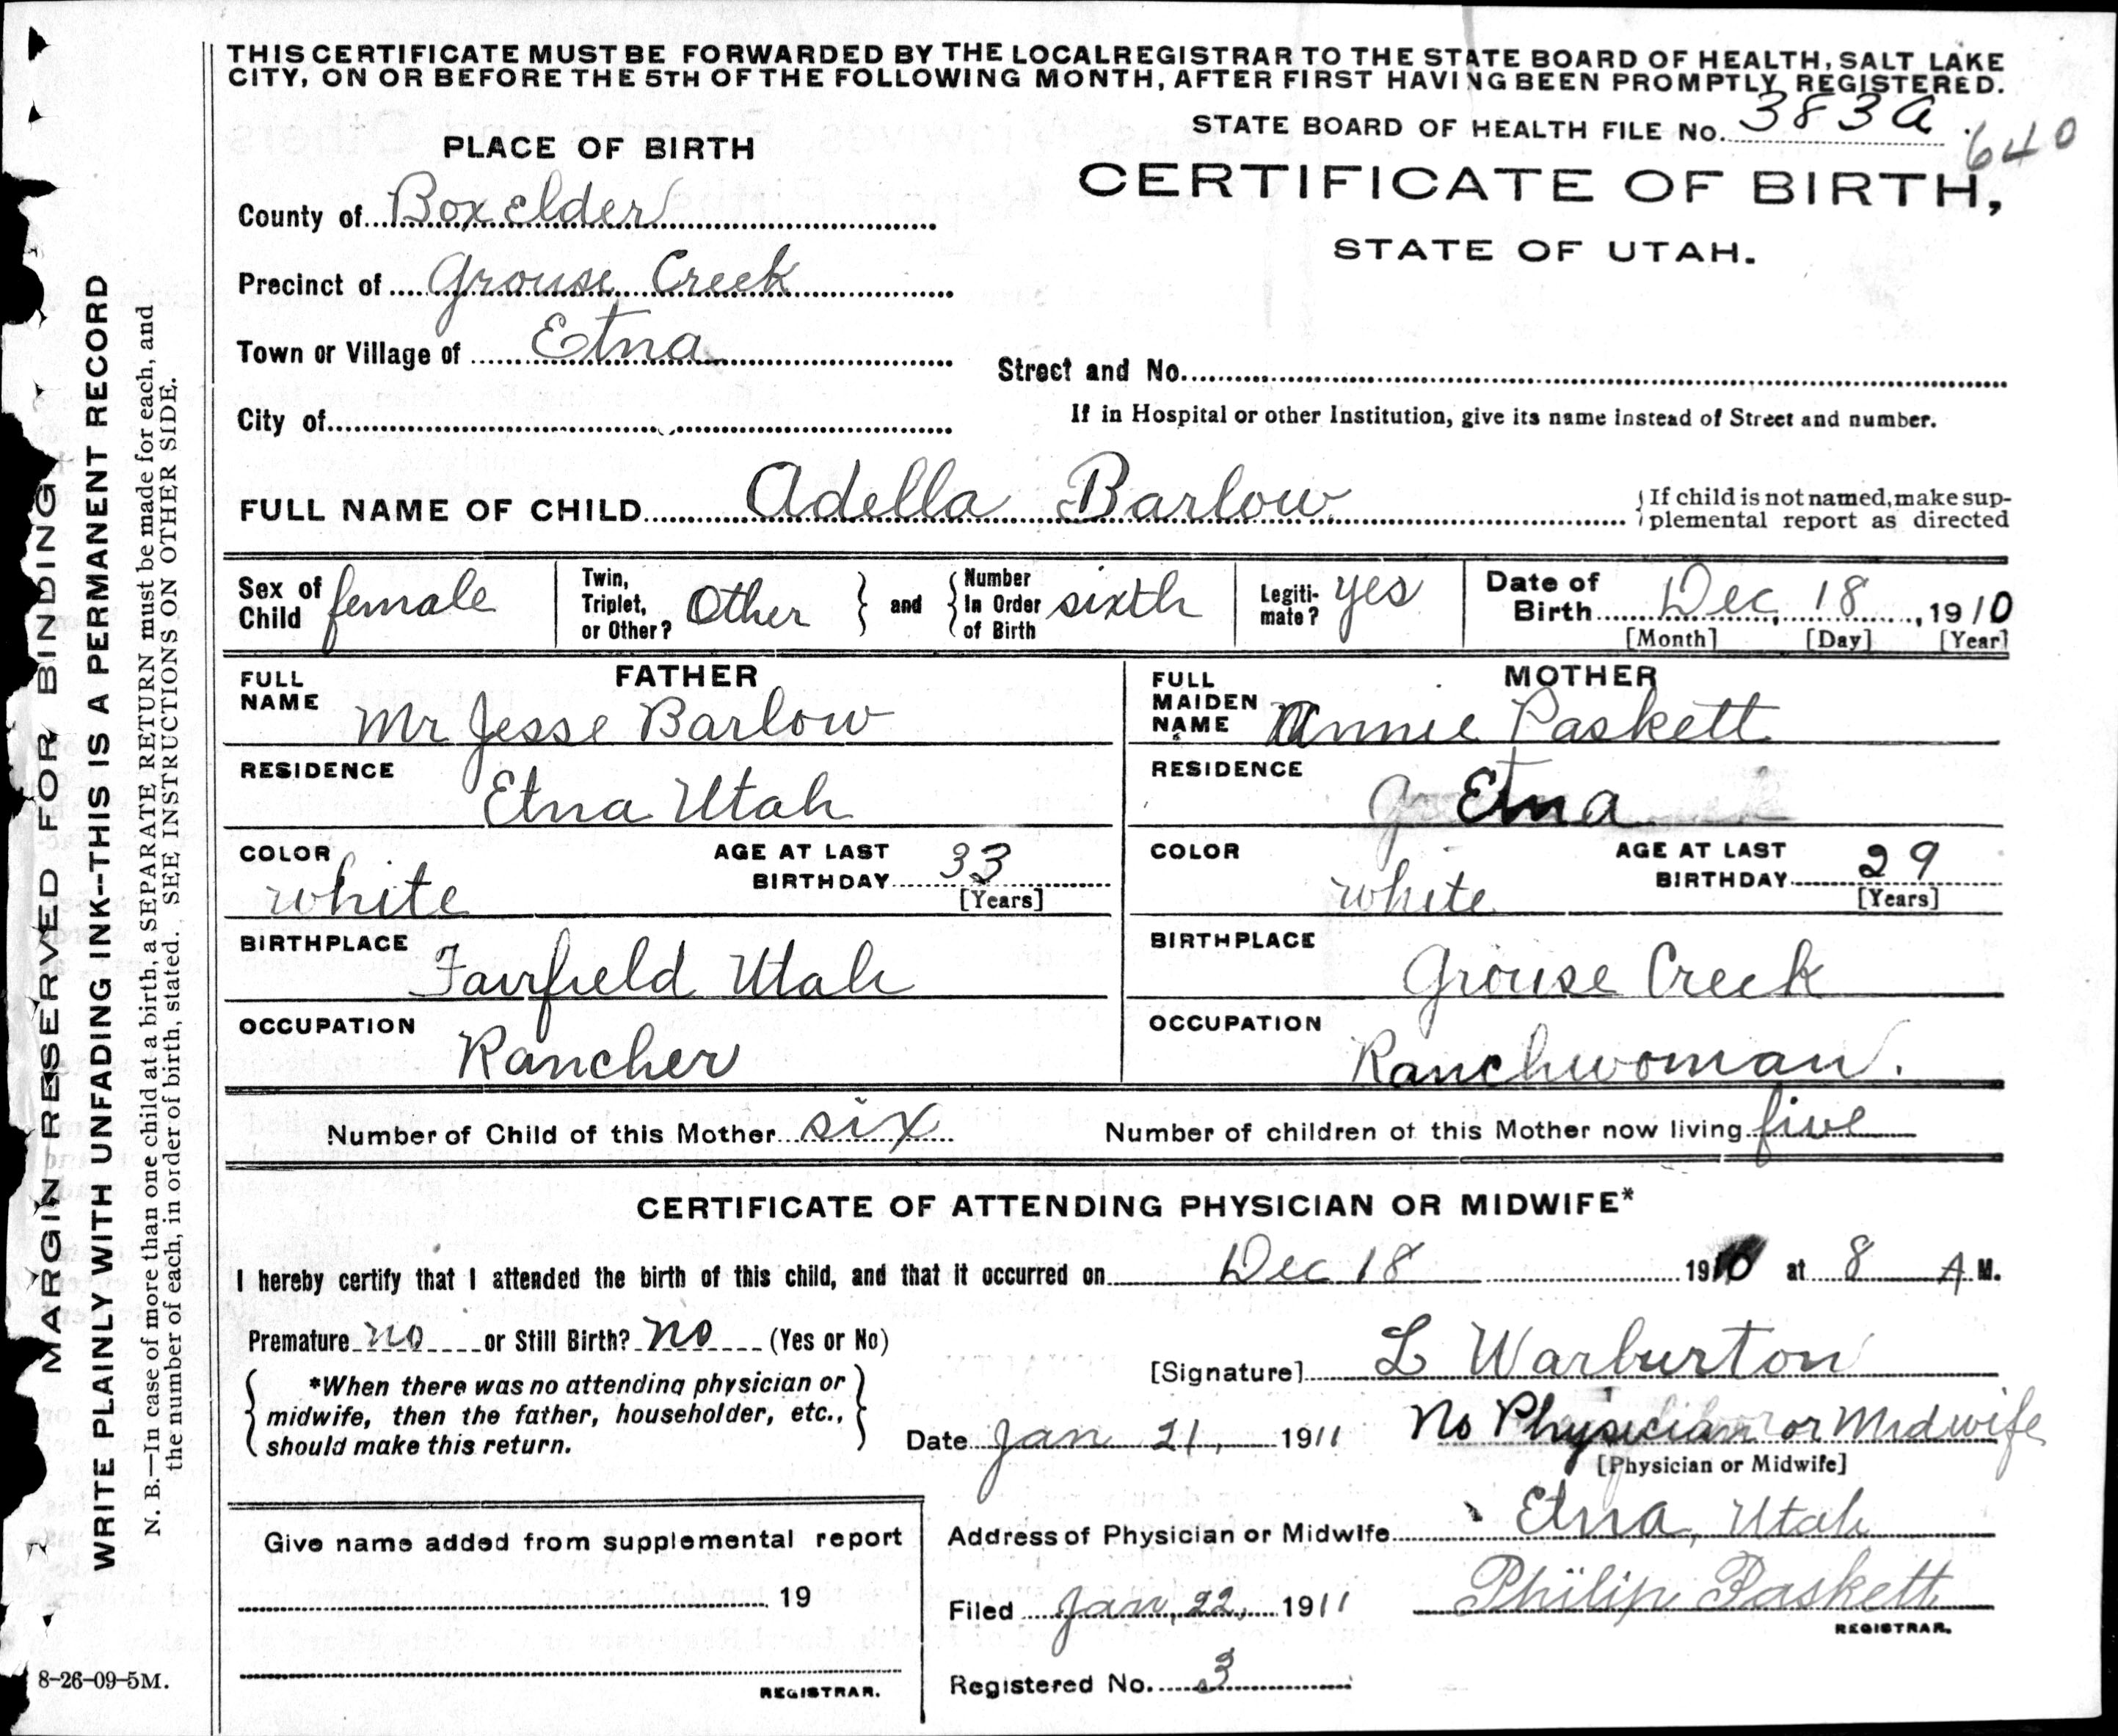 THIS CERTIFICATE MUST BE FORWARDED BY THE LOCAL REGISTRAR TO THE STATE BOARD OF HEALTH, SALT LAKE
CITY, ON OR BEFORE THE 5TH OF THE FOLLOWING MONTH, AFTER FIRST HAVING BEEN PROMPTLY REGISTERED.
STATE BOARD OF HEALTH FILE No. 383a
640
PLACE OF BIRTH
CERTIFICATE OF BIRTH,
STATE OF UTAH.
County of Box Elder
Precinct of Grouse Creek
Town or Village of Etna
Street and No.
City of
If in Hospital or other Institution, give its name instead of Street and number.
FULL NAME OF CHILD Adella Barlow
If child is not named, make sup-
plemental report as directed
Sex of Child female
Twin, Triplet, or Other? Other and Number In Order of Birth sixth
Legiti-mate? yes
Date of Birth Dec 18, 1910
[Month] [Day] [Year]
FATHER
FULL NAME Mr Jesse Barlow
RESIDENCE Etna Utah
COLOR white AGE AT LAST BIRTHDAY 33
[Years]
BIRTHPLACE Fairfield Utah
OCCUPATION Rancher
MOTHER
FULL MAIDEN NAME Annie Paskett
RESIDENCE Etna
COLOR white AGE AT LAST BIRTHDAY 29
[Years]
BIRTHPLACE Grouse Creek
OCCUPATION Ranchwoman.
Number of Child of this Mother six Number of children of this Mother now living five
CERTIFICATE OF ATTENDING PHYSICIAN OR MIDWIFE*
I hereby certify that I attended the birth of this child, and that it occurred on Dec 18 1910 at 8 A M.
Premature no or Still Birth? no (Yes or No)
*When there was no attending physician or
midwife, then the father, householder, etc.,
should make this return.
[Signature] L Warburton
Date Jan 21, 1911 No Physician or Midwife
[Physician or Midwife]
Address of Physician or Midwife Etna, Utah
Filed Jan, 22, 1911 Philip Paskett
REGISTRAR.
Registered No. 3
Give name added from supplemental report
19
REGISTRAR.
8-26-09-5M.
MARGIN RESERVED FOR BINDING
WRITE PLAINLY WITH UNFADING INK--THIS IS A PERMANENT RECORD
N. B.—In case of more than one child at a birth, a SEPARATE RETURN must be made for each, and
the number of each, in order of birth, stated. SEE INSTRUCTIONS ON OTHER SIDE.